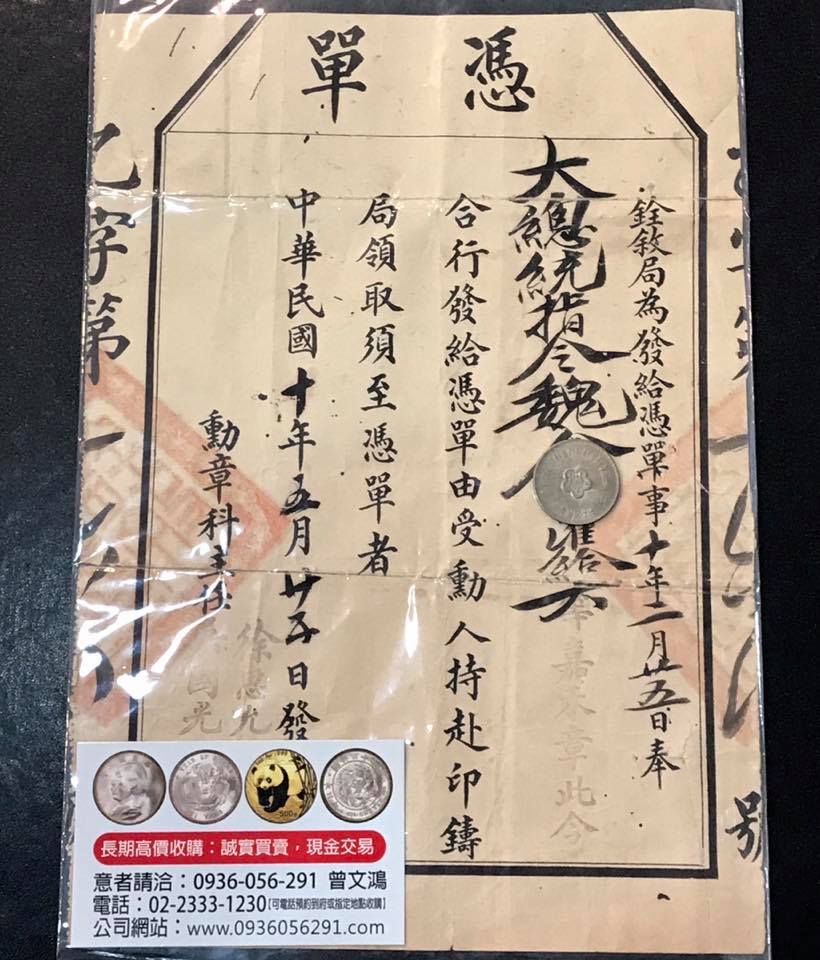 憑單
銓敘局為發給憑單事十年二月廿五日奉
大總統指令魏 給六
嘉禾章此令
合行發給憑單由受勳人持赴印鑄
局領取須至憑單者
中華民國十年五月廿 日發
勳章科主任
徐惠
國光
乙字第一
號
長期高價收購：誠實買賣，現金交易
意者請洽：0936-056-291 曾文鴻
電話：02-2333-1230【可電話預約到府或指定地點收購】
公司網站：www.0936056291.com